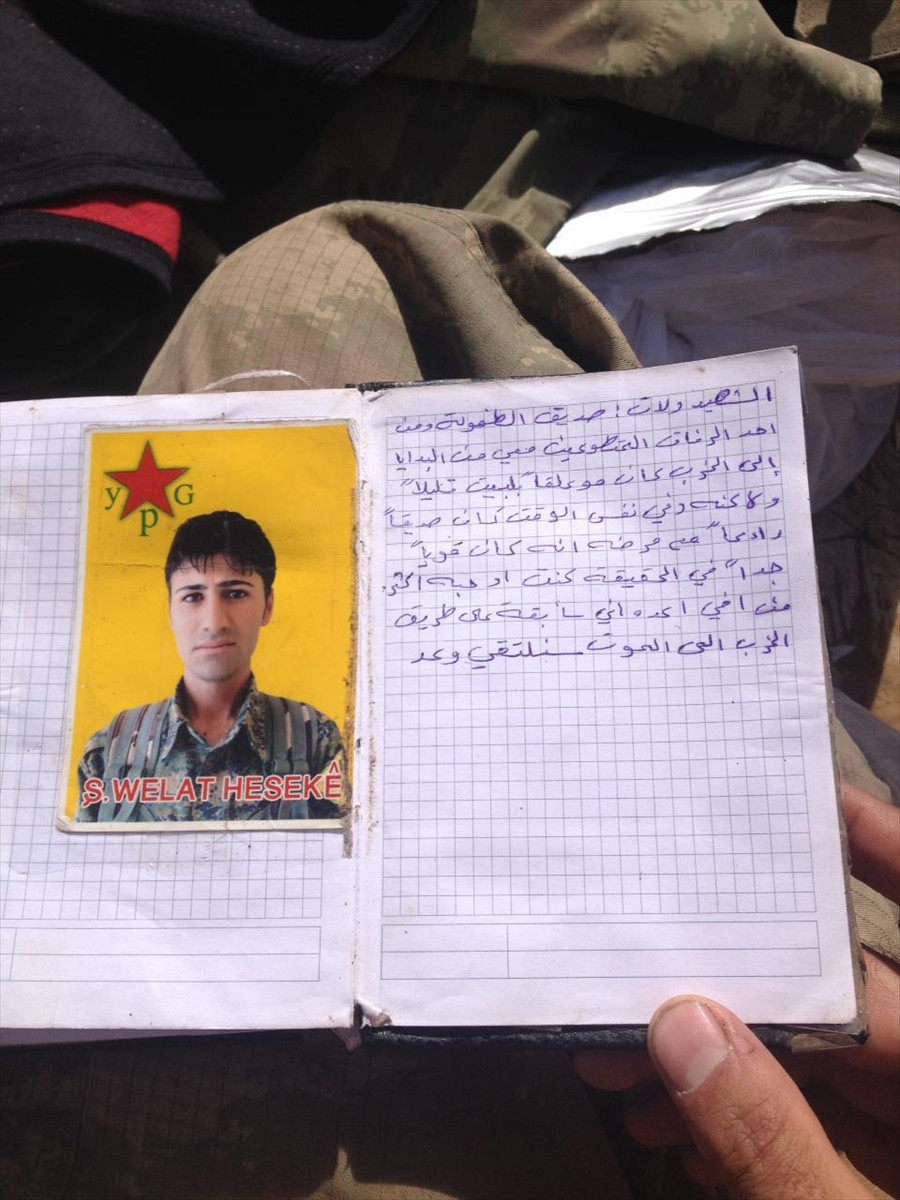 YPG
Ş. WELAT HESEKÊ
الشهيد ولات: صديق الطفولة ومن
احد الرفاق المتطوعين معي من البدايا
إلى الحزب كان موعلقاً بلبيت قليلاً
ولاكنه وفي نفس الوقت كان صديقاً
رادعاً مع مرضه انه كان قوياً
جداً في الحقيقة كنت اوحبه أكثر
من اخي سابقة على طريق
الحزب الى الموت سنلتقي وعد